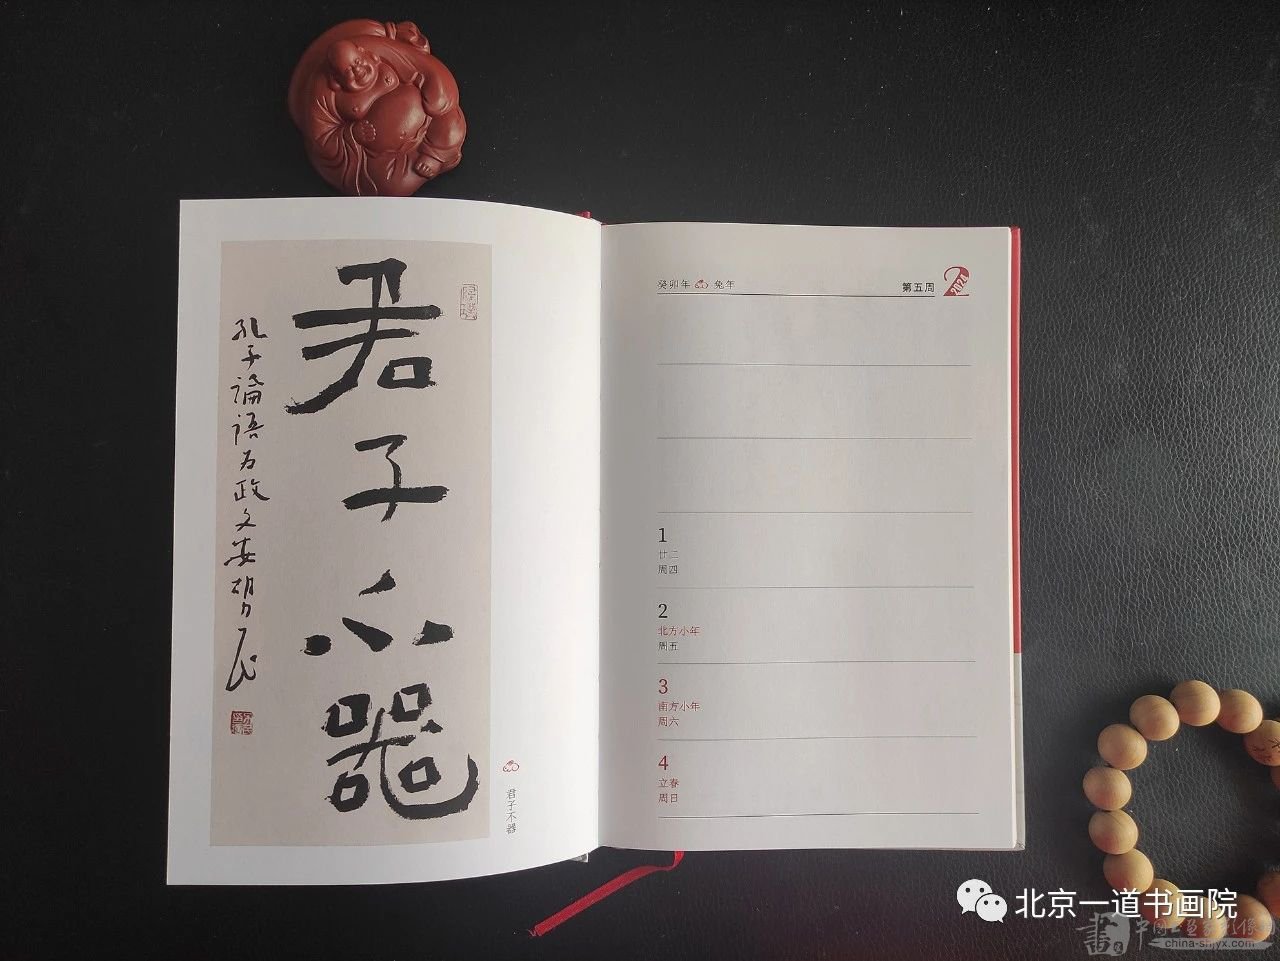 君子不器
孔子論語为政文安胡力民
君子不器
癸卯年 兔年
第五周
2
2024
1
廿二
周四
2
北方小年
周五
3
南方小年
周六
4
立春
周日
北京一道书画院
china-shjyx.com